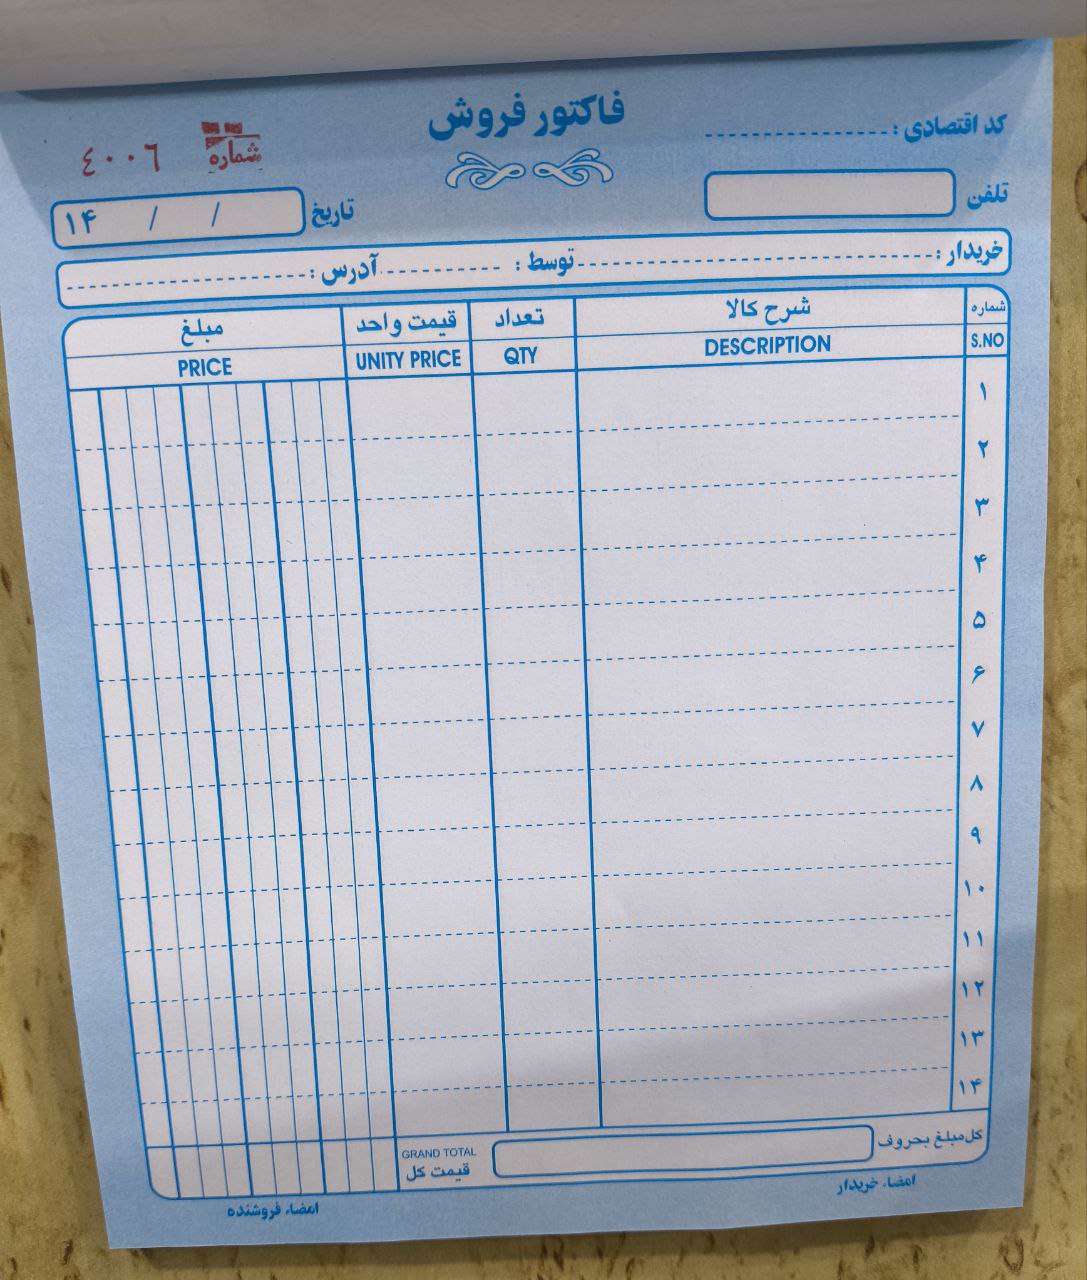 فاکتور فروش
کد اقتصادی :
شماره ٤٠٠٦
تلفن
تاریخ / / ۱۴
خریدار : توسط : آدرس :
شماره شرح کالا تعداد قیمت واحد مبلغ
S.NO DESCRIPTION QTY UNITY PRICE PRICE
۱
۲
۳
۴
۵
۶
۷
۸
۹
۱۰
۱۱
۱۲
۱۳
۱۴
کل مبلغ بحروف GRAND TOTAL
قیمت کل
امضاء خریدار امضاء فروشنده